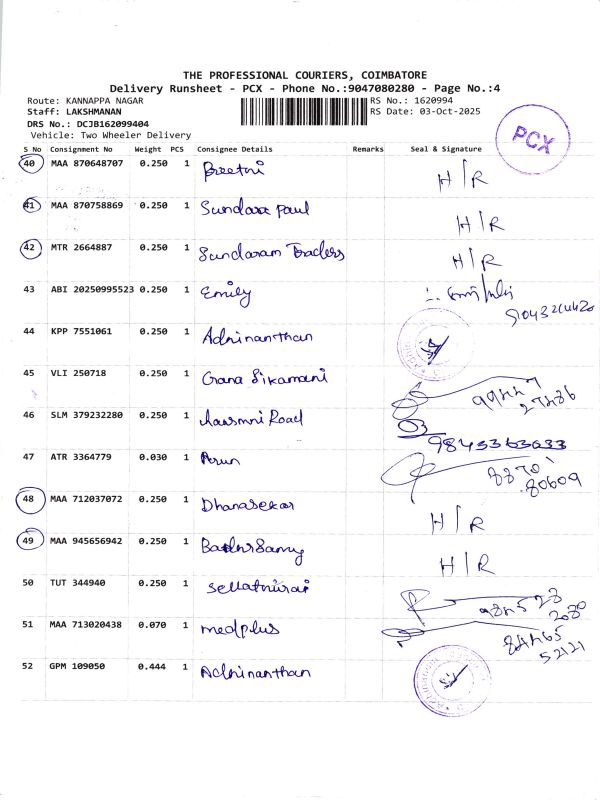 THE PROFESSIONAL COURIERS, COIMBATORE
Delivery Runsheet - PCX - Phone No.:9047080280 - Page No.:4
Route: KANNAPPA NAGAR RS No.: 1620994
Staff: LAKSHMANAN RS Date: 03-Oct-2025
DRS No.: DCJB162099404
Vehicle: Two Wheeler Delivery
PCX
S No Consignment No Weight PCS Consignee Details Remarks Seal & Signature
40 MAA 870648707 0.250 1 Preethi H/R
41 MAA 870758869 0.250 1 Sundara paul H/R
42 MTR 2664887 0.250 1 Sundaram Traders H/R
43 ABI 20250995523 0.250 1 Emily
44 KPP 7551061 0.250 1 Adhinanthan
45 VLI 250718 0.250 1 Gana Sikamani
46 SLM 379232280 0.250 1 Road
9843363633
47 ATR 3364779 0.030 1 Arun 88701
80609
48 MAA 712037072 0.250 1 Dhanasekar H/R
49 MAA 945656942 0.250 1 H/R
50 TUT 344940 0.250 1 Sellathurai
51 MAA 713020438 0.070 1 medplus
52121
52 GPM 109050 0.444 1 Adhinanthan